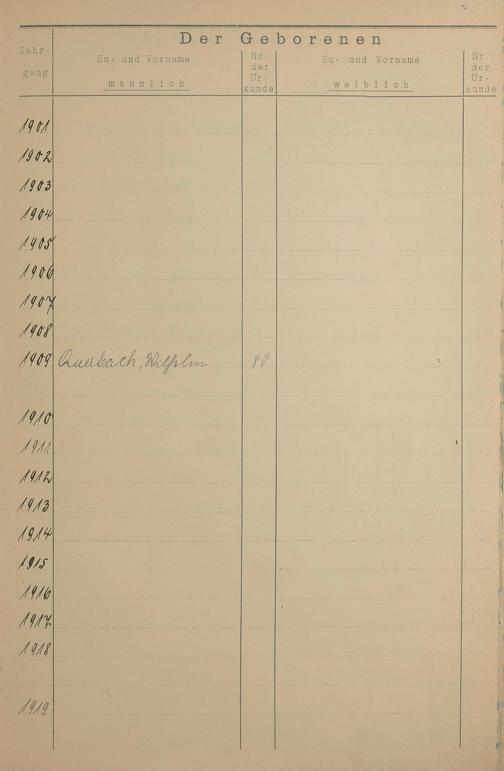 2
Der Geborenen
Jahr- gang
Zu- und Vorname männlich
Nr. der Ur- kunde
Zu- und Vorname weiblich
Nr. der Ur- kunde
1901
1902
1903
1904
1905
1906
1907
1908
1909 Querbach, Wilhelm 80
1910
1911
1912
1913
1914
1915
1916
1917
1918
1919